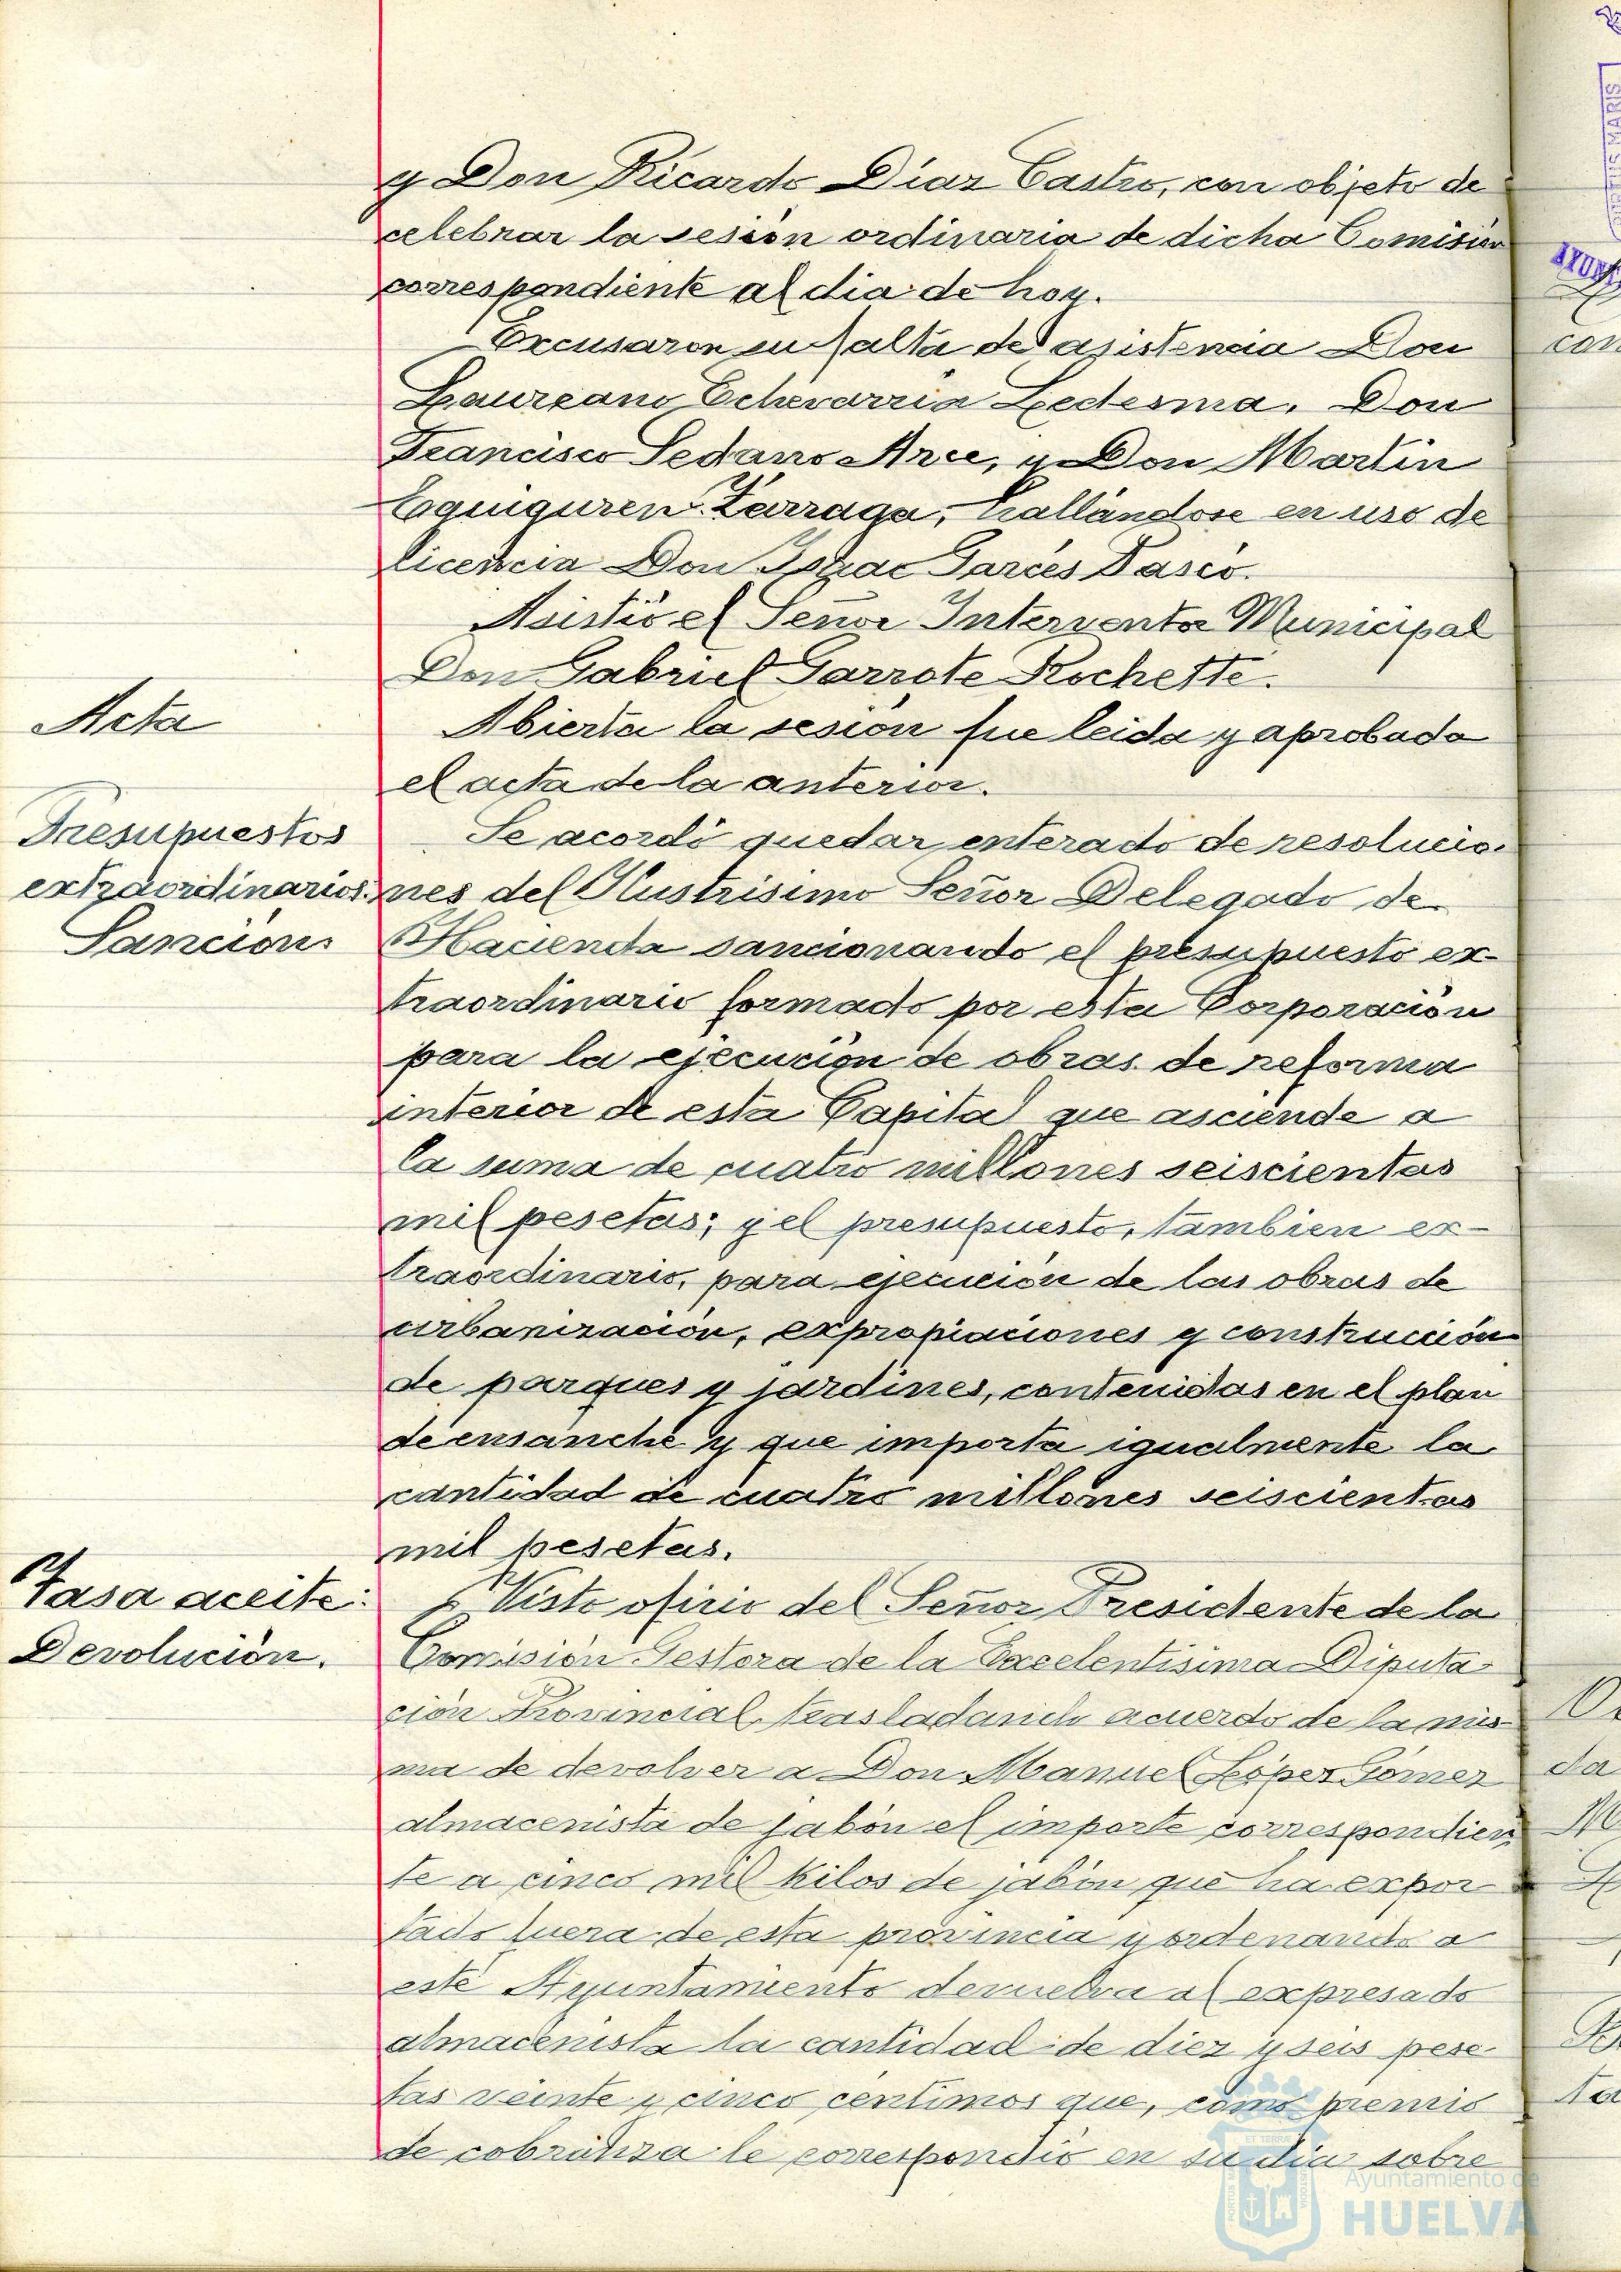 y Don Ricardo Díaz Castro, con objeto de
celebrar la sesión ordinaria de dicha Comisión
correspondiente al dia de hoy.
Excusaron su falta de asistencia Don
Laureano Echevarria Ledesma, Don
Francisco Sedano Arce, y Don Martin
Eguiguren Zárraga, hallándose en uso de
licencia Don Isaac Garcés Pasco.
Asistió el Señor Interventor Municipal
Don Gabriel Garrote Rochette.
Acta
Abierta la sesión fue leida y aprobada
el acta de la anterior.
Presupuestos
extraordinarios.
Sanción.
Se acordó quedar enterado de resolucio-
nes del Ilustrisimo Señor Delegado de
Hacienda sancionando el presupuesto ex-
traordinario formado por esta Corporación
para la ejecución de obras de reforma
interior de esta Capital que asciende a
la suma de cuatro millones seiscientas
mil pesetas; y el presupuesto, tambien ex-
traordinario, para ejecución de las obras de
urbanización, expropiaciones y construcción
de parques y jardines, contenidas en el plan
de ensanche y que importa igualmente la
cantidad de cuatro millones seiscientas
mil pesetas.
Tasa aceite:
Devolución.
Visto oficio del Señor Presidente de la
Comisión Gestora de la Excelentisima Diputa-
ción Provincial, trasladando acuerdo de la mis-
ma de devolver a Don Manuel López Gómez
almacenista de jabón el importe correspondien
te a cinco mil kilos de jabón que ha expor
tado fuera de esta provincia y ordenando a
este Ayuntamiento devuelva al expresado
almacenista la cantidad de diez y seis pese-
tas veinte y cinco centimos que, como premio
de cobranza le correspondió en su dia sobre
Ayuntamiento de
HUELVA